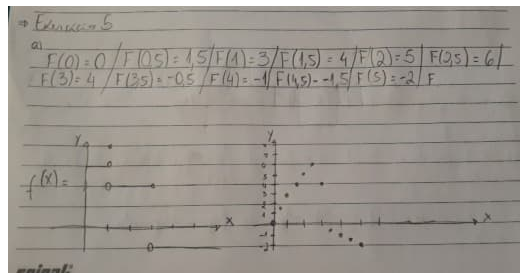 ⇒ Exercício 5
a)
F(0)=0 / F(0,5)=1,5 / F(1)=3 / F(1,5)=4 / F(2)=5 / F(2,5)=6 /
F(3)=4 / F(3,5)=-0,5 / F(4)=-1 / F(4,5)=-1,5 / F(5)=-2 / F
y
y
f(x)=
x
x
4
3
2
1
-1
-2